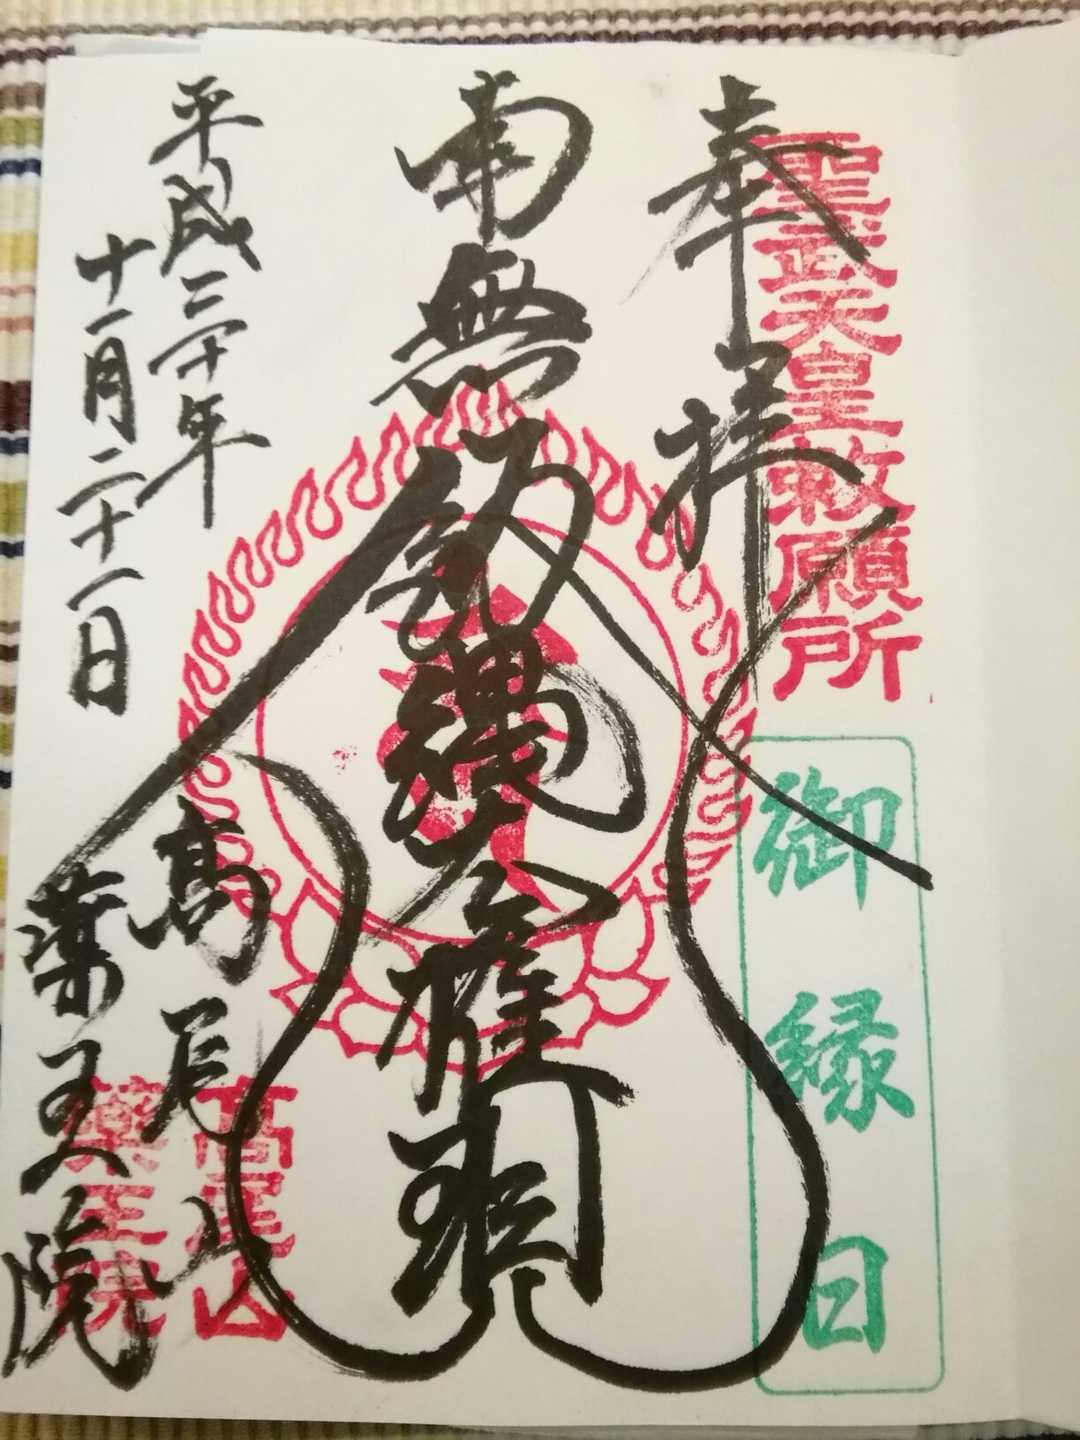 奉拝
聖武天皇敕願所
御縁日
南無飯縄大権現
平成三十年
十一月二十一日
高尾山
薬王院
高尾山
薬王院